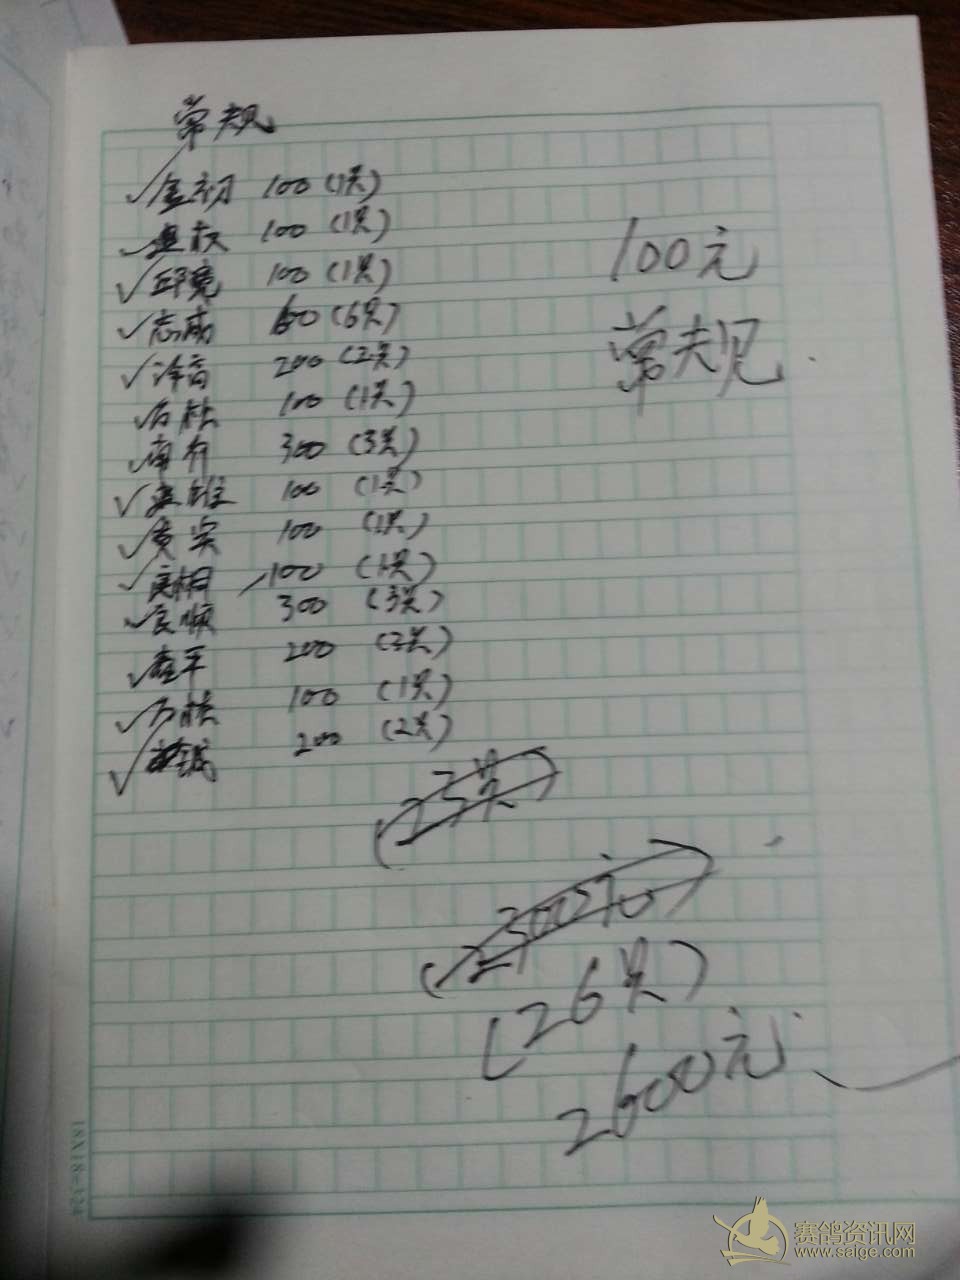 常规
100 (1只)
100 (1只)
邱宽 100 (1只)
志成 600 (6只)
200 (2只)
100 (1只)
300 (3只)
100 (1只)
黄实 100 (1只)
良相 100 (1只)
良顺 300 (3只)
200 (2只)
100 (1只)
200 (2只)
100元
常规
(25只)
(2500元)
(26只)
2600元
18X18=324
赛鸽资讯网
www.saige.com